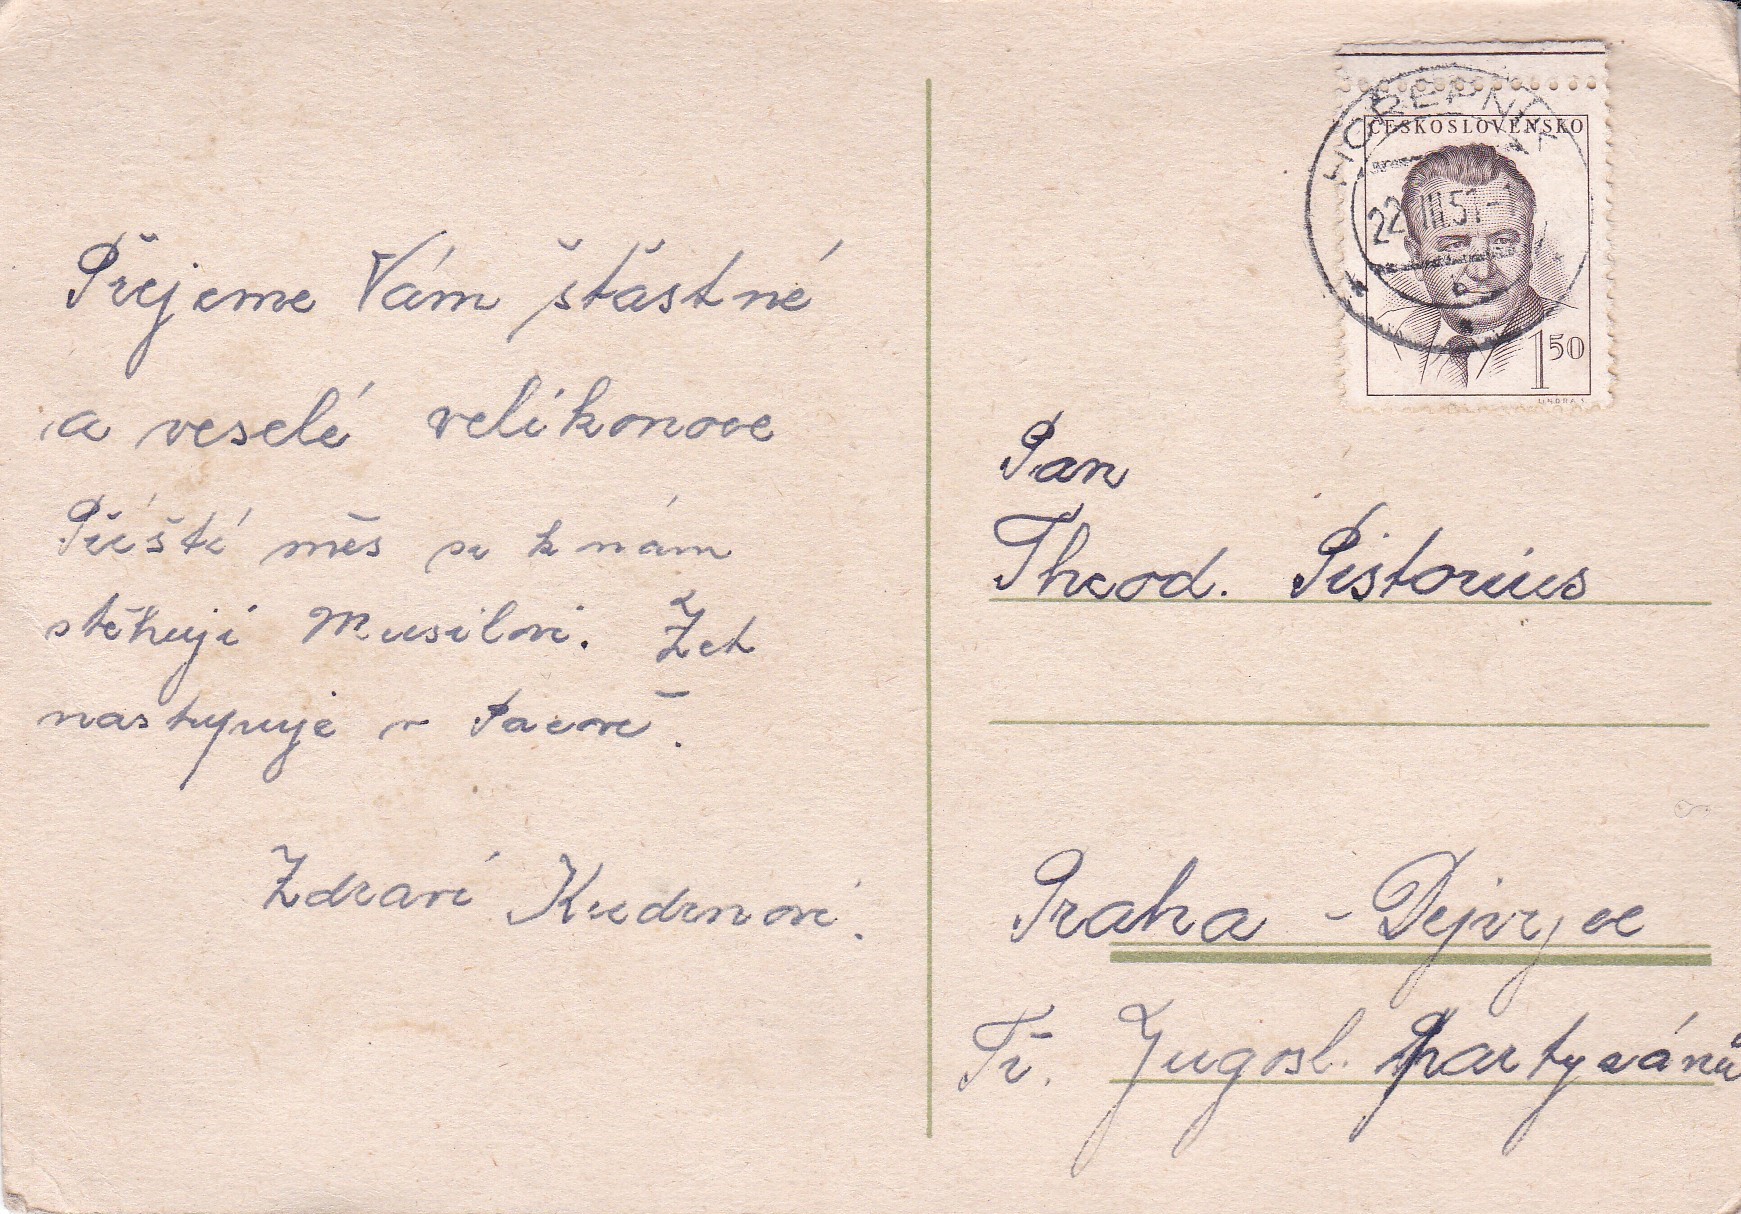 Přejeme Vám šťastné
a veselé velikonoce
Příští měs se k nám
stěhují Musilovi. Zet
nastupuje v Pacově.
Zdraví Kudrnovi.
HOŘEPNÍK
22.III.51
ČESKOSLOVENSKO
1 50
Pan
Theod. Pistorius
Praha - Dejvyce
Tř. Jugosl. partyzánů